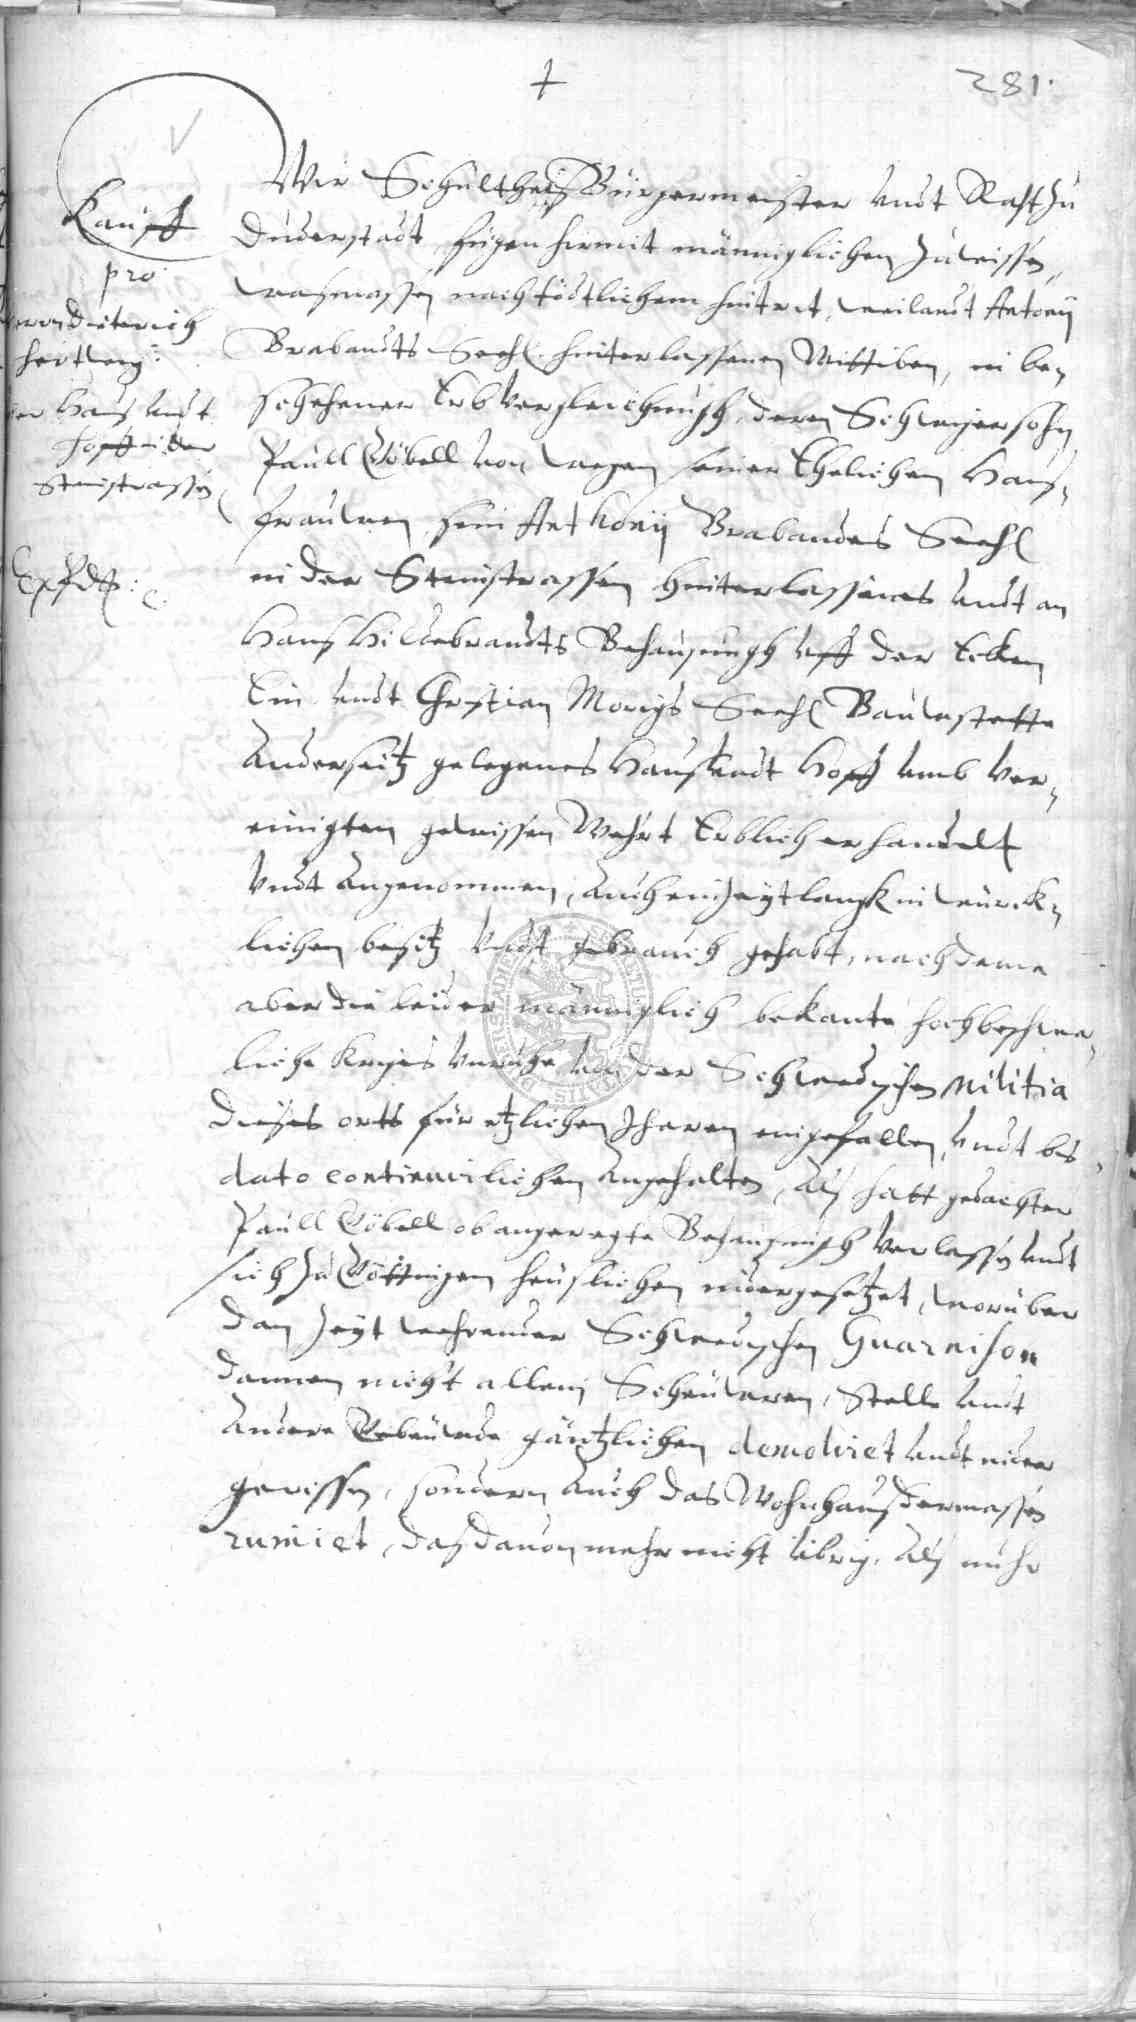 281.
Kauff
pro
Dieterich
Hertwig
Hauß undt
hoff in der
Steinstrassen
Wir Schultheis Bürgermeister undt Raht zu
Duderstadt fügen hiermit männiglichen zu wissen,
wasmassen nach tödtlichem hintrit, weilandt Antonij
Brabandts Seehl. hinterlassenen Wittiben, in be-
schehener Erbvergleichungh, deren Schwigersohn
Paull Göbell von wegen seiner Ehelichen Haus-
frauwen, sein Anthonij Brabandts Seehl
in der Steinstrassen hinterlassenes undt an
Hans Hildebrandts Behausungh uff der Ecken
Ein undt Christian Moriys Seehl Bauwstette
Anderseitz gelegenes Haus undt Hoff umb ver-
einigten gewissen Wehrt Erblich erhandelt
undt Angenommen, Auch ein Zeytlangk in würck-
lichen besitz undt gebrauch gehabt, nachdeme
aber die leider männiglich bekante hochbeschwe-
liche Kriges unruhe von der Schwedischen militia
dieses orts für etzlichen Jharen eingefallen, undt bis
dato continuirlichen Angehalten, Als hatt gedachter
Paull Göbell obangeregte Behausungh verlassen undt
sich zu Göttingen heuslichen nidergesetzet, worüber
dan Zeyt wehrender Schwedischen Guarnison
dannen nicht allein Scheuweren, Stelle undt
Andere Gebeuwde gäntzlichen demoliret undt nider
gerissen, sondern Auch das Wohnhaus dermassen
ruiniret, das davon mehr nicht übrig, Als nuhr